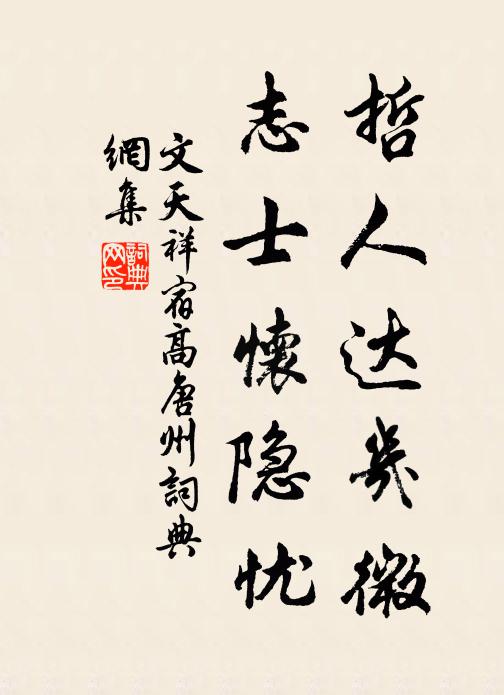 哲人达幾微
志士懷隐忧
文天祥宿高唐州詞典
網集
詞典
网印